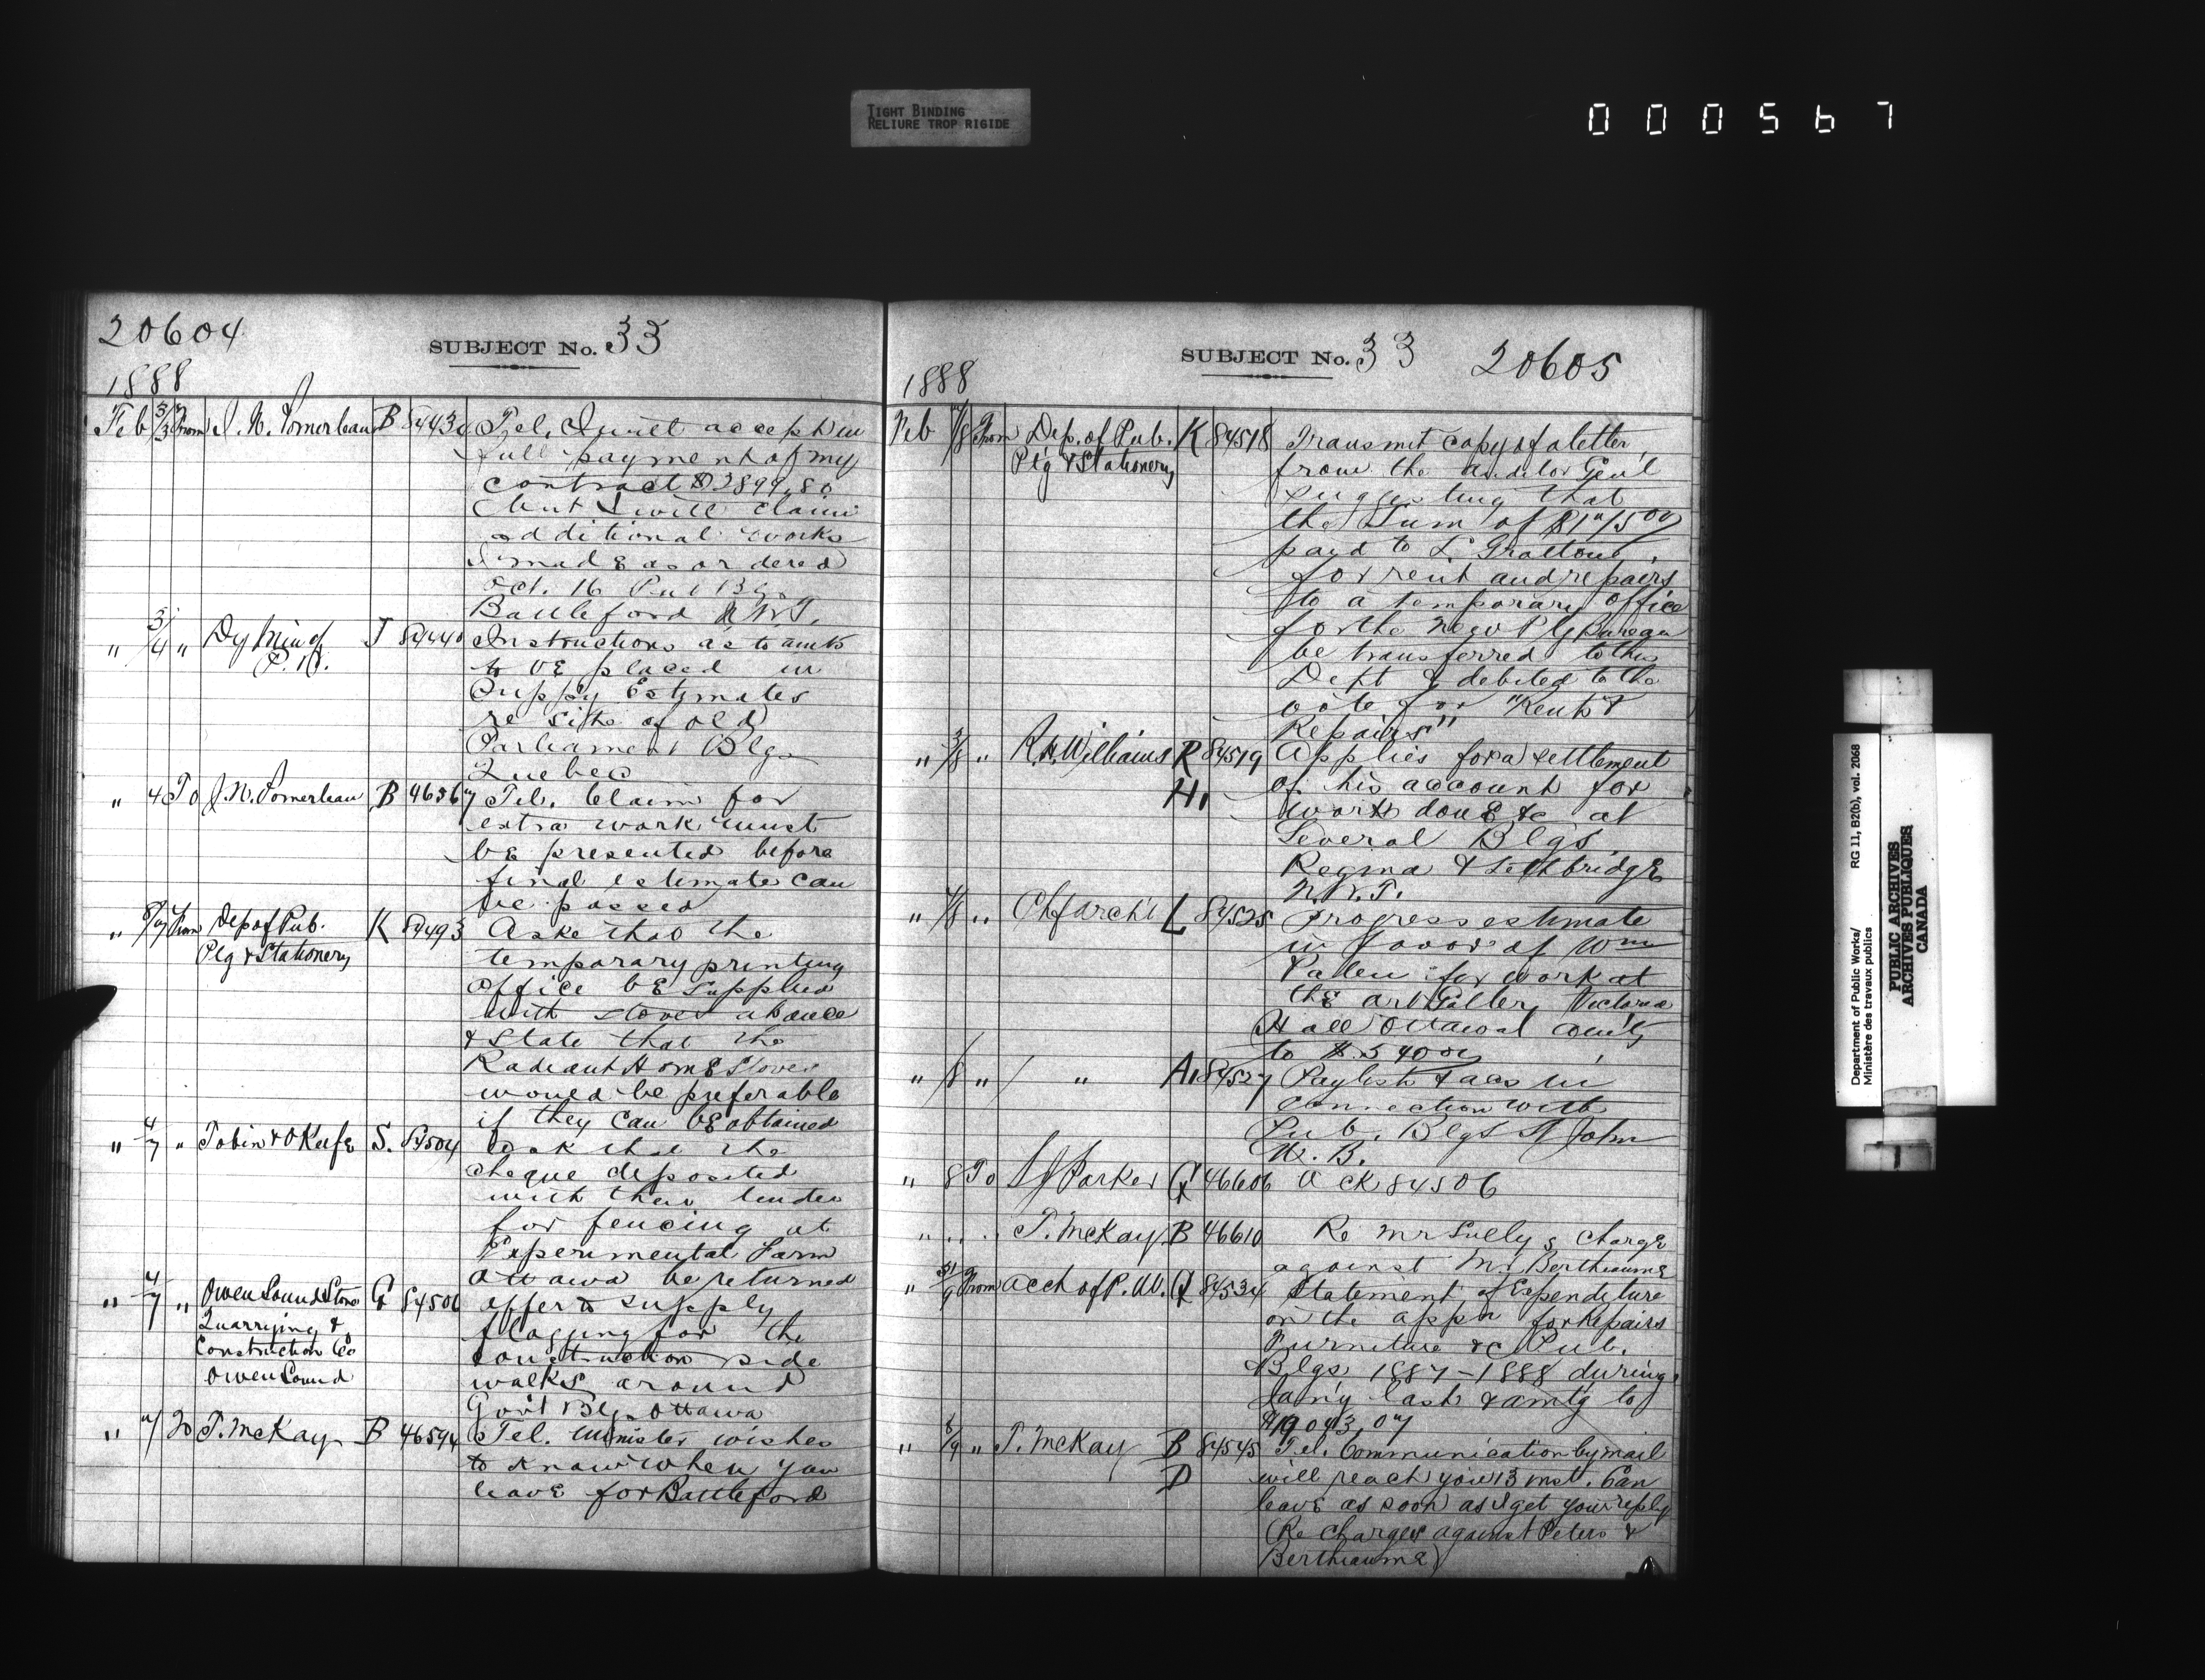 TIGHT BINDING
RELIURE TROP RIGIDE
000567
20604
SUBJECT No. 33
1888
Feb 3/3 From J. N. Pomerleau B 84434 Tel. I will accept in
full payment of my
contract $2899.80
but I will claim
additional works
I made as ordered
Oct. 16 Pub Bg.
Battleford N.W.T.
" 3/4 " Dy Min of J 84440 Instructions as to amts
P. W. to be placed in
Supply Estimates
re site of old
Parliament Blgs
Quebec
" 4 To J. N. Pomerleau B 46567 Tel. Claim for
extra work must
be presented before
final estimate can
be passed
" 6/7 From Dep of Pub. K 84493 Asks that the
Ptg & Stationery temporary printing
office be supplied
with stoves at once
& state that the
Radiant Home Stoves
would be preferable
if they can be obtained
" 4/7 " Tobin & O'Keefe S. 84504 ask that the
cheque deposited
with their tender
for fencing at
Experimental Farm
Ottawa be returned
" 4/7 " Owen Sound Stone G 84506 offer to supply
Quarrying & flagging for the
Construction Co construction side
Owen Sound walks around
Gov't Blgs Ottawa
" 7 To T. McKay B 46594 Tel. Minister wishes
to know when you
leave for Battleford
SUBJECT No. 33 20605
1888
Feb 7/8 From Dep. of Pub. K 84518 Transmit copy of a letter
Ptg & Stationery from the auditor Genl
suggesting that
the Sum of
paid to L. Grattons
for rent and repairs
to a temporary office
for the new Ptg Bureau
be transferred to this
Dept & debited to the
vote for "Rents &
Repairs"
" 3/8 " R. H. Williams R 84519 Applies for a settlement
H. of his account for
work done &c at
Several Blgs
Regina & Lethbridge
N.W.T.
" 7/8 " Chf archt L 84525 Progress estimate
in favor of Wm
for work at
the art Gallery Victoria
Hall Ottawa
to $540 00
" /8 " / " A. 84527 Paylist & accs in
connection with
Pub. Blgs St John
N. B.
" 8 To Parker G 46606 Ack 84506
" " " T. McKay B 46610 Re Mr Lully's charge
against Mr Bertheaume
" 31/9 From acct of P. W. G 84534 Statement of Expenditure
on the appn for Repairs
Furniture &c Pub.
Blgs 1887-1888 during
Jan'y last & amtg to
$19 043.07
" 8/9 " T. McKay B 84545 Tel. Communication by mail
D will reach you 13 inst. Can
leave as soon as I get your reply
(Re charges against Peters &
Bertheaume)
Department of Public Works/ RG 11, B2(b), vol. 2068
Ministère des travaux publics
PUBLIC ARCHIVES
ARCHIVES PUBLIQUES
CANADA